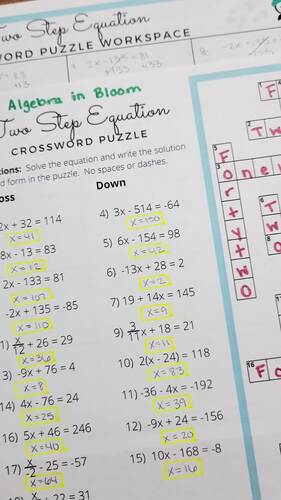 Two Step Equation
WORD PUZZLE WORKSPACE
2x - 133 = 81
+133 +133
8.
Algebra in Bloom
Two Step Equation
CROSSWORD PUZZLE
tions: Solve the equation and write the solution
d form in the puzzle. No spaces or dashes.
oss
Down
2x + 32 = 114
x=41
8x - 13 = 83
x=12
2x - 133 = 81
x=107
-2x + 135 = -85
x=110
1) x/12 + 26 = 29
x=36
3) -9x + 76 = 4
x=8
14) 4x - 76 = 24
x=25
16) 5x + 46 = 246
x=40
17) x/-2 - 25 = -57
x=64
+ 22 = 31
4) 3x - 514 = -64
x=150
5) 6x - 154 = 98
x=42
6) -13x + 28 = 2
x=2
7) 19 + 14x = 145
x=9
9) 3/11x + 18 = 21
x=11
10) 2(x - 24) = 118
x=83
11) -36 - 4x = -192
x=39
12) -9x + 24 = -156
x=20
15) 10x - 168 = -8
x=16
1 F
2 T W
5 F
3 O n e
r
t
y
t
W
O
6 T
W
8 O
16 F O